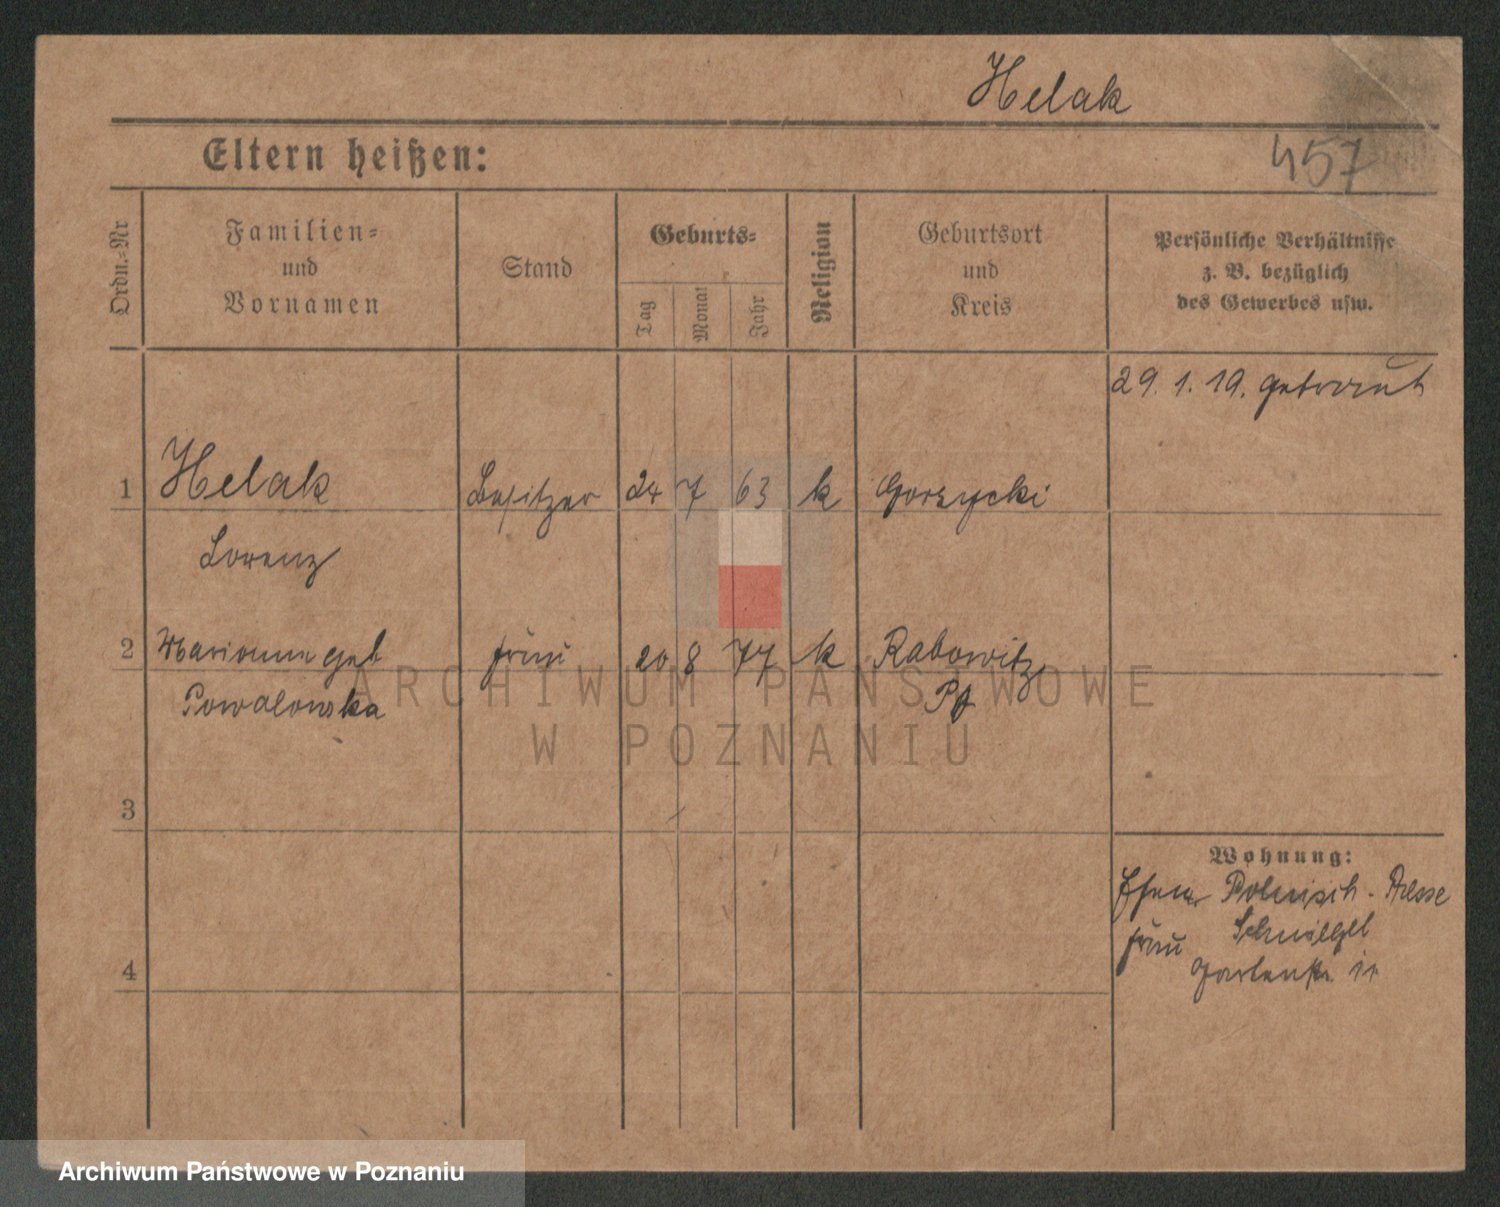 Helak
457
Eltern heißen:
Ordn.-Nr
Familien-
und
Vornamen
Stand
Geburts-
Tag
Monat
Jahr
Religion
Geburtsort
und
Kreis
Persönliche Verhältnisse
z. B. bezüglich
des Gewerbes usw.
29. 1. 19. getraut
1 Helak Besitzer 24 7 63 k Gorzycki
Lorenz
2 Marianna geb Frau 20 8 77 k Rabowitz
Powalowska
3
Wohnung:
Polnisch-
Frau Schmiegel
4
Gartenstr.
ARCHIWUM PAŃSTWOWE
W POZNANIU
Archiwum Państwowe w Poznaniu